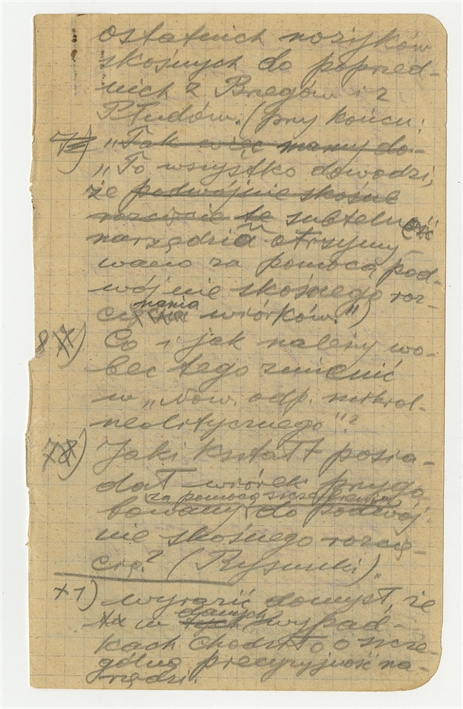 ostatnich nożyków
skośnych do poprzed-
nich z Bregów i z
Płudów. (przy końcu:
7) „Tak więc mamy do-
„To wszystko dowodzi,
że podwójnie skośne
rozcięcie te subtelność
narzędzia otrzymy-
wano za pomocą pod-
wójnie skośnego roz-
cinania wiórków.")
8) Co i jak należy wo-
bec tego zmienić
w „Now. odp. mikrol-
neolitycznego"?
78) Jaki kształt posia-
dał wiórek przygo
za pomocą
towany do podwój-
nie skośnego rozcię-
cia? (Rysunki).
+1) wyrazić domysł, że
w danych wypad-
kach chodziło o szcze-
gólną precyzyjność na-
rzędzi.